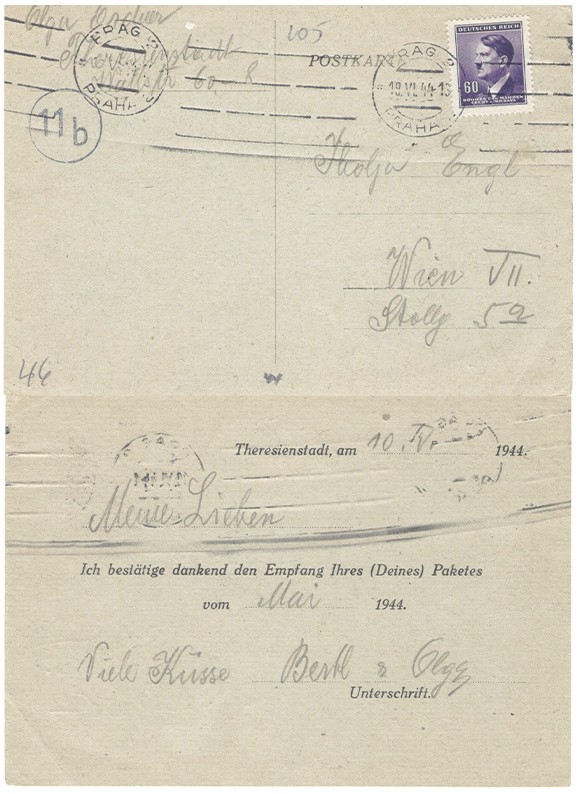 Olga
105
Theresienstadt
POSTKARTE
PRAG
PRAHA
11b
PRAG
18.VI.44
PRAHA
DEUTSCHES REICH
60
BÖHMEN UND MÄHREN
Engl
Wien VII.
Stollg 5a
46
Theresienstadt, am 10. IV. 1944.
Meine Lieben
Ich bestätige dankend den Empfang Ihres (Deines) Paketes
vom Mai 1944.
Viele Küsse Bertl & Olga
Unterschrift.